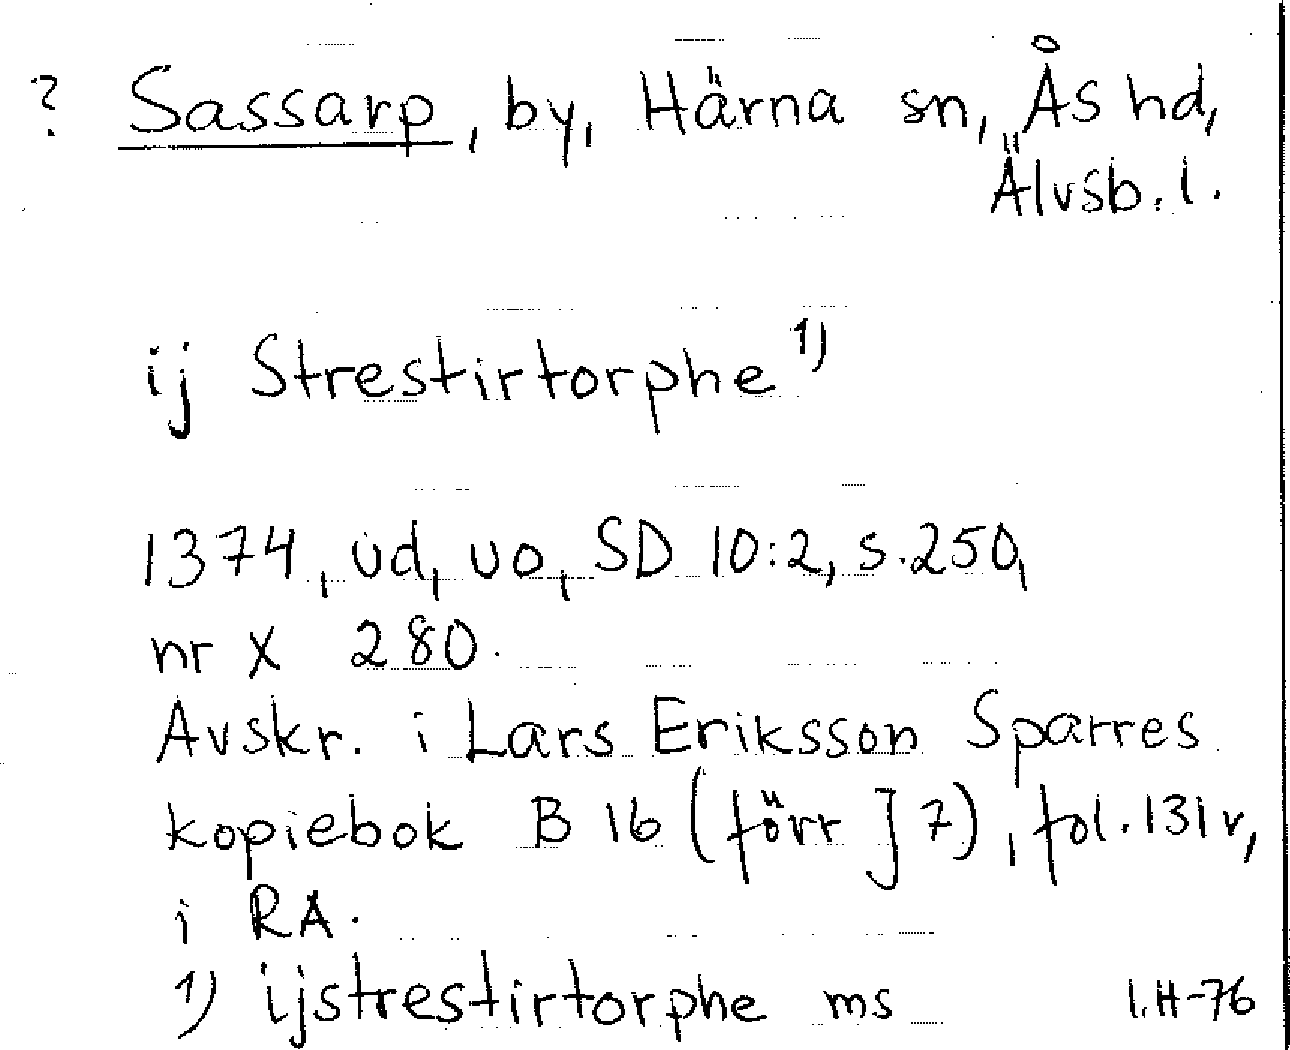 ? Sassarp, by, Härna sn, Ås hd,
Älvsb. l.
ij Strestirtorphe 1)
1374, ud, uo, SD 10:2, s. 250,
nr X 280.
Avskr. i Lars Eriksson Sparres
kopiebok B 16 (förr J 7), fol. 131 v,
i RA.
1) ijstrestirtorphe ms I.H-76